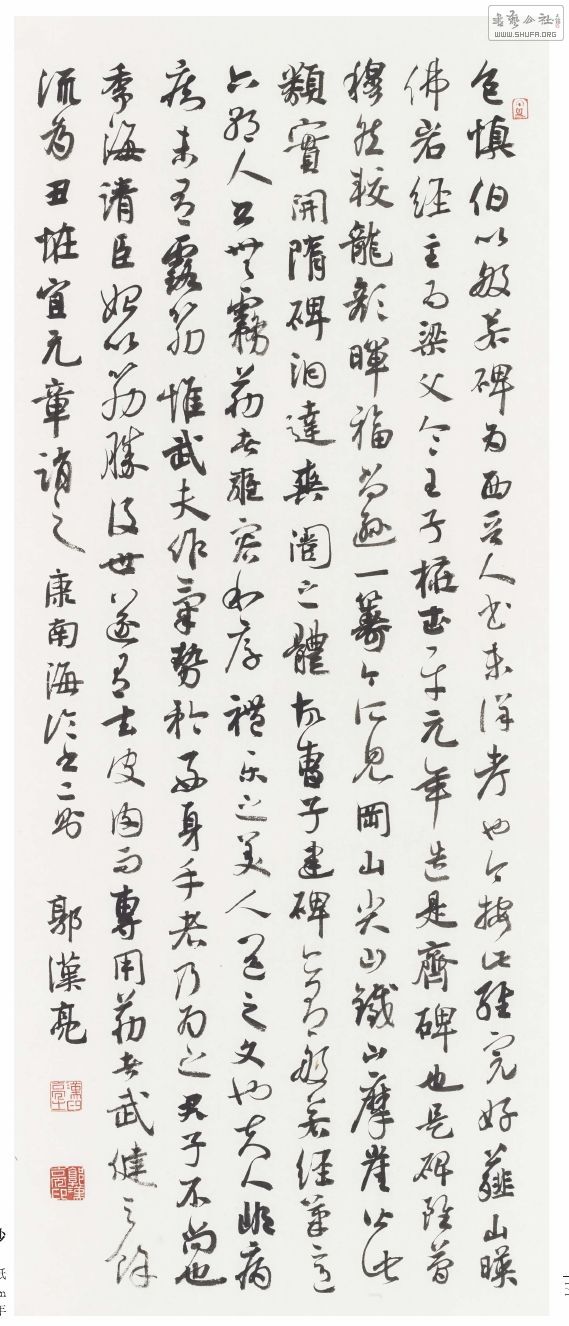 包慎伯以般若碑為西晉人書未詳考也今按此經完好薤山暎
佛岩經主為梁父令王子椿武平元年造是齊碑也是碑雖簡
穆然較龍顏暉福尚遜一籌今所見岡山尖山鐵山摩崖皆此
類實開隋碑洞達爽闓之體故曹子建碑亦有般若經筆意
六朝人書無露筋者雍容和厚禮樂之美人道之文也夫人非病
疾未有露筋惟武夫作氣勢於好身手者乃為之君子不尚也
季海清臣始以筋勝後世遂有去皮肉而專用筋者武健之餘
流為丑怪宜元章誚之 康南海論書二則 郭漢亮
書藝公社
WWW.SHUFA.ORG